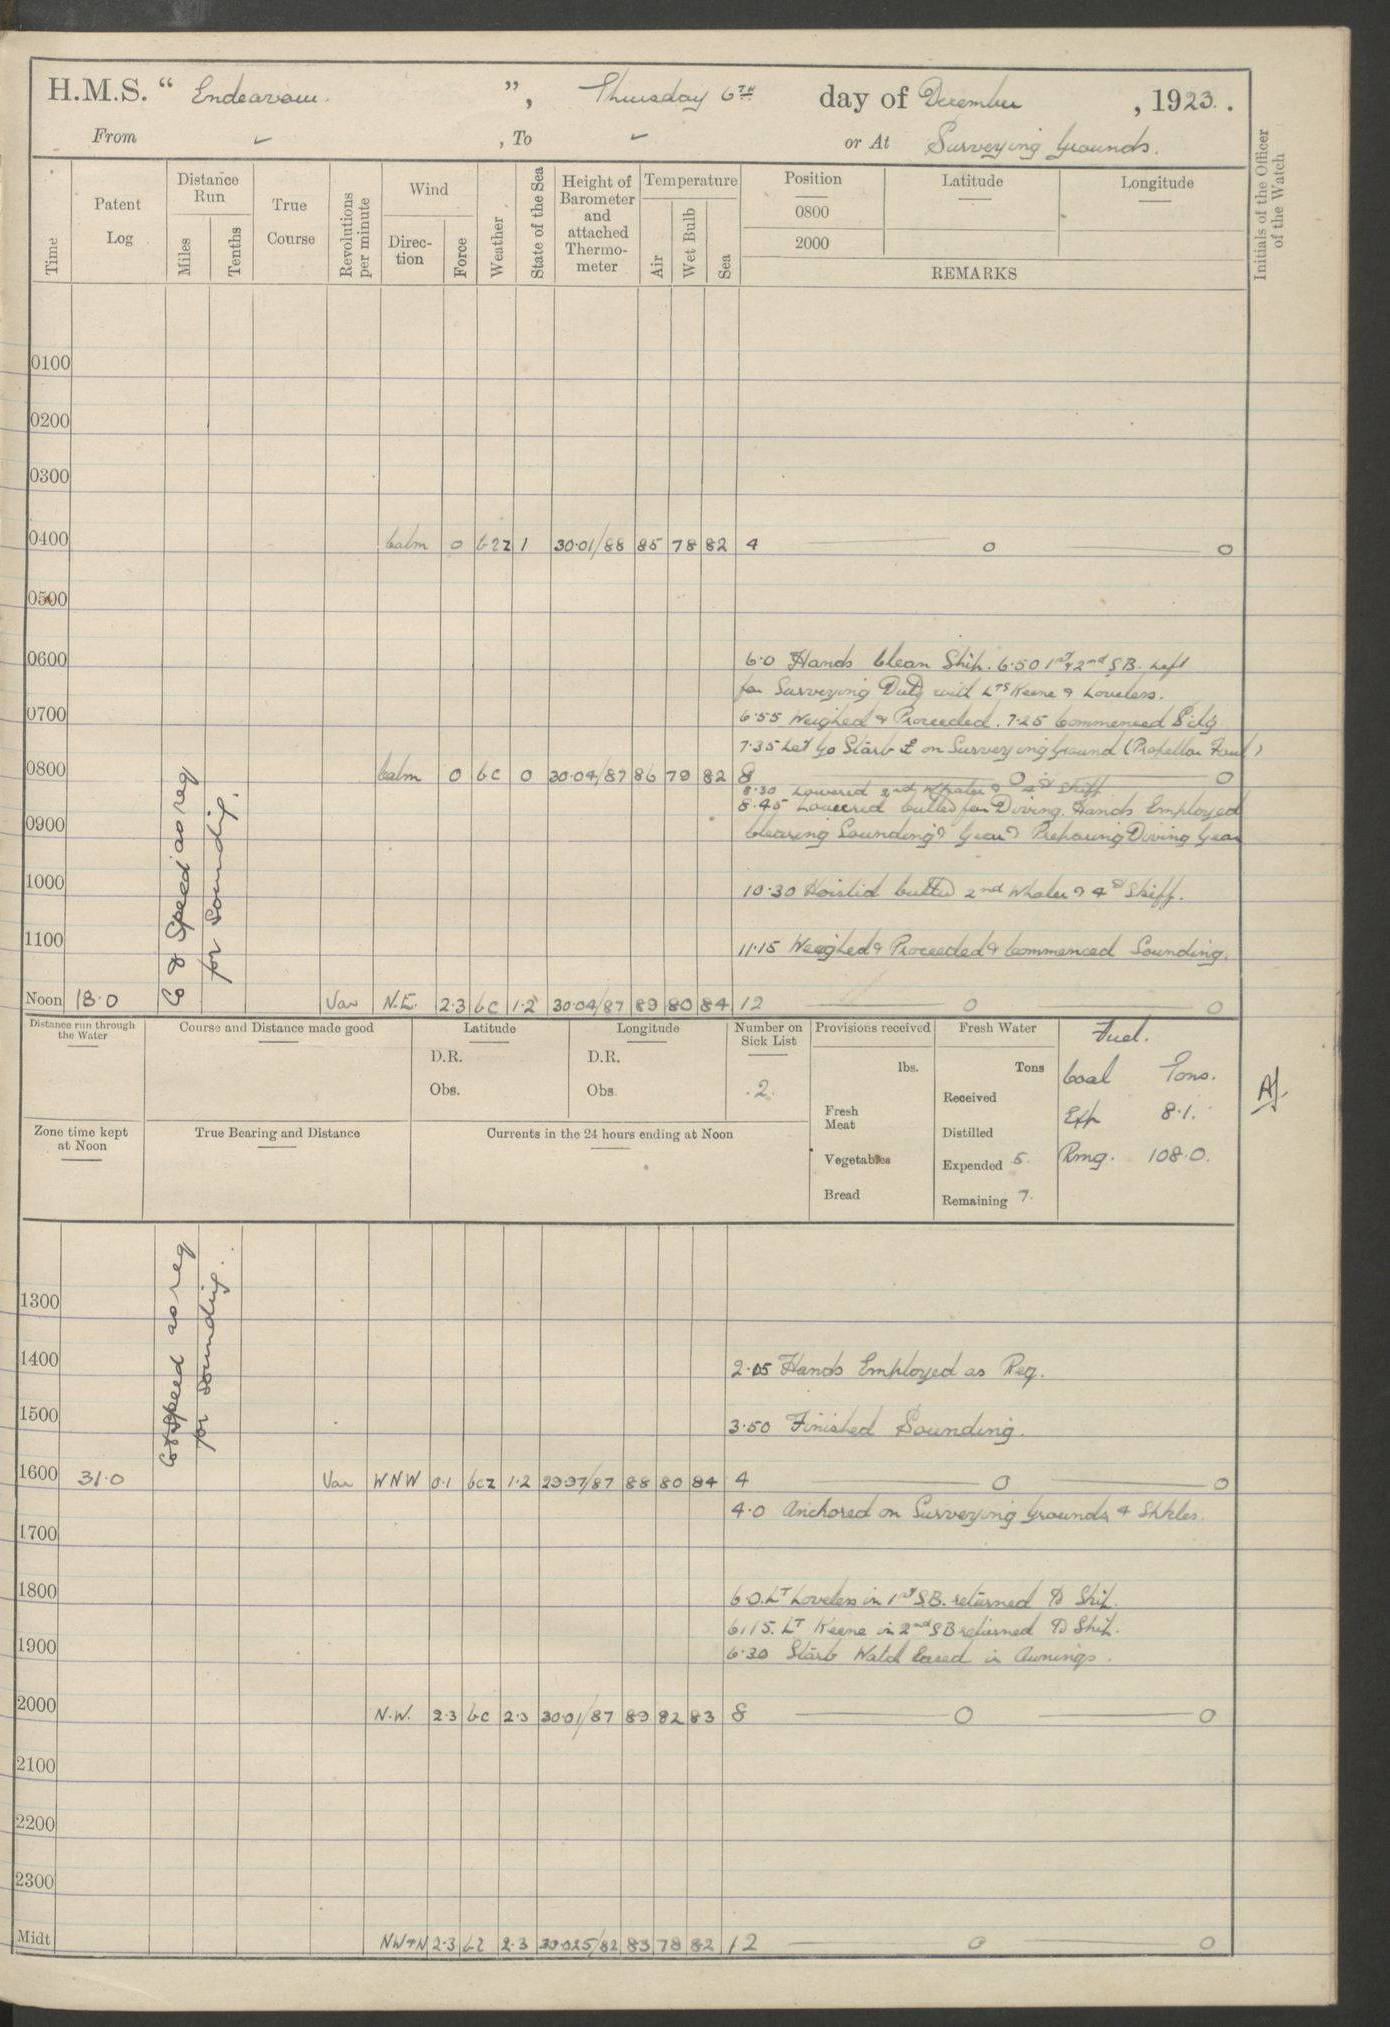 H.M.S. “ Endeavour. ”, Thursday 6TH day of December , 1923. .
From ✓ , To ✓ or At Surveying Grounds.
Time
Patent Log
Distance Run
Miles
Tenths
True Course
Revolutions per minute
Wind
Direc- tion
Force
Weather
State of the Sea
Height of Barometer and attached Thermo- meter
Temperature
Air
Wet Bulb
Sea
Position
Latitude
Longitude
0800
2000
REMARKS
Initials of the Officer of the Watch
0100
0200
0300
0400 Calm 0 1 30·01/88 85 78 82 4 0 0
0500
0600 6·0 Hands Clean Ship. 6·50 1st & 2nd S.B. Left
for Surveying Duty with Lts Keene & Loveless.
0700 6·55 Weighed & Proceeded. 7·25 Commenced Sdg
7·35 Let Go Starb on Surveying Ground (Propellor Foul)
0800 Calm 0 bc 0 30·04/87 86 79 82 8 0 0
8·30 Lowered 2nd Whaler & Skiff
8·45 Lowered cutter for Diving. Hands Employed
0900 Clearing Sounding Gear & Preparing Diving Gear
1000 10·30 Hoisted cutter 2nd Whaler & Skiff.
1100 11·15 Weighed & Proceeded & Commenced Sounding.
C & Speed as req
for Sounding.
Noon 18·0 Var N.E. 2·3 bc 1·2 30·04/87 89 80 84 12 0 0
Distance run through the Water
Course and Distance made good
Latitude
D.R.
Obs.
Longitude
D.R.
Obs.
Number on Sick List
2.
Provisions received
lbs.
Fresh Meat
Vegetables
Bread
Fresh Water
Tons
Received
Distilled
Expended 5.
Remaining 7.
Fuel.
Coal Tons.
Exp 8·1.
Rmg. 108·0.
Zone time kept at Noon
True Bearing and Distance
Currents in the 24 hours ending at Noon
C & Speed as req
for Sounding.
1300
1400 2·05 Hands Employed as Req.
1500 3·50 Finished Sounding.
1600 31·0 Var WNW 0·1 bcz 1·2 29·97/87 88 80 84 4 0 0
4·0 Anchored on Surveying Grounds 4 Shkles.
1700
1800 6·0. Lt Loveless in 1st S.B. returned to Ship.
6.15. Lt Keene in 2nd SB returned to Ship.
1900 6·30 Starb Watch Eased in Awnings.
2000 N.W. 2·3 bc 2·3 30·01/87 89 82 83 8 0 0
2100
2200
2300
Midt 2·3 2·3 30·025/82 83 78 82 12 0 0